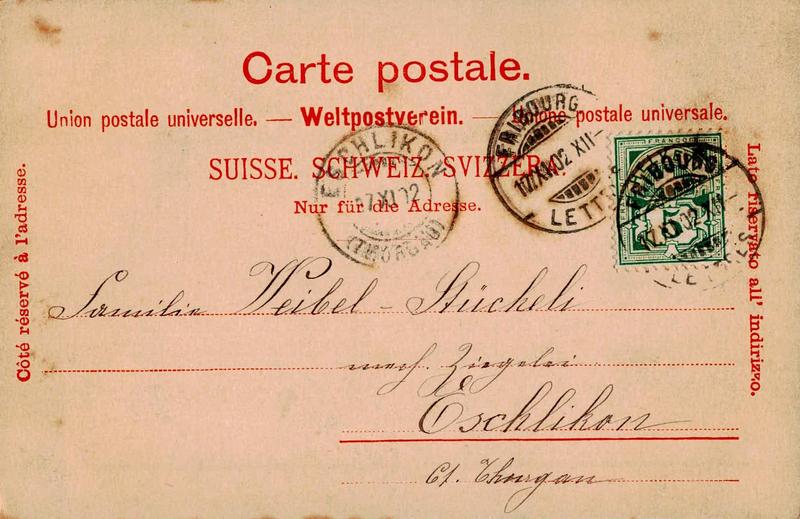 Carte postale.
Union postale universelle. — Weltpostverein. — Unione postale universale.
SUISSE. SCHWEIZ. SVIZZERA.
Nur für die Adresse.
Côté réservé à l'adresse.
Lato riservato all' indirizzo.
ESCHLIKON
17 XI 02
(THURGAU)
FRIBOURG
17.XI.02.XII
LETTRES
FRANCO
FRIBOURG
17.XI.02.XII
LETTRES
Familie Weibel-Stücheli
mech. Ziegelei
Eschlikon
Ct. Thurgau